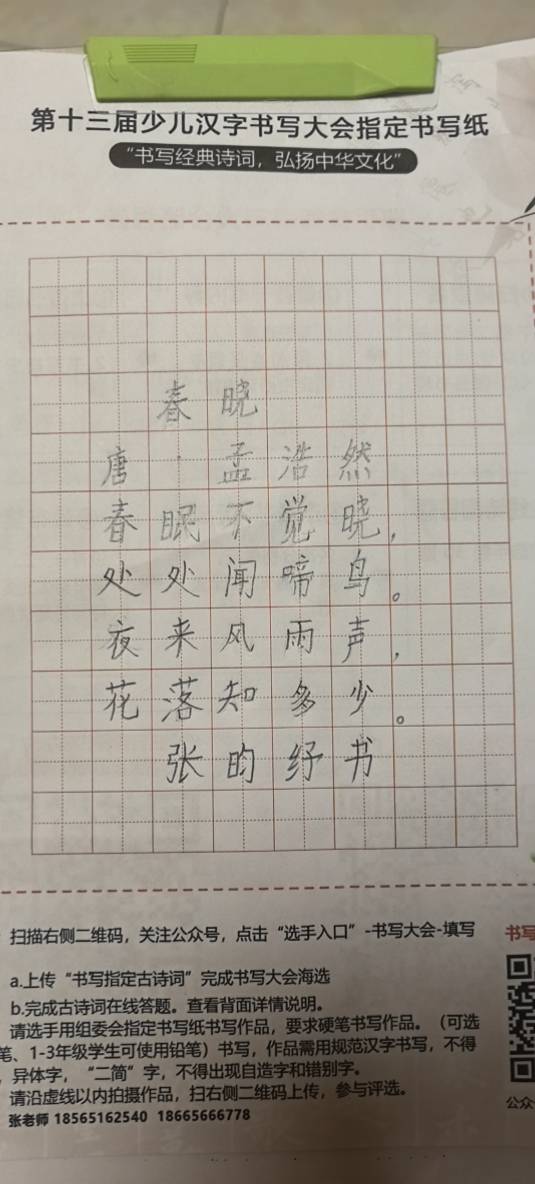 第十三届少儿汉字书写大会指定书写纸
“书写经典诗词，弘扬中华文化”
春晓
唐·孟浩然
春眠不觉晓，
处处闻啼鸟。
夜来风雨声，
花落知多少。
张昀纾书
扫描右侧二维码，关注公众号，点击“选手入口”-书写大会-填写
a.上传“书写指定古诗词”完成书写大会海选
b.完成古诗词在线答题。查看背面详情说明。
请选手用组委会指定书写纸书写作品，要求硬笔书写作品。（可选
笔、1-3年级学生可使用铅笔）书写，作品需用规范汉字书写，不得
，异体字，“二简”字，不得出现自造字和错别字。
请沿虚线以内拍摄作品，扫右侧二维码上传，参与评选。
张老师 18565162540 18665666778
书写
公众